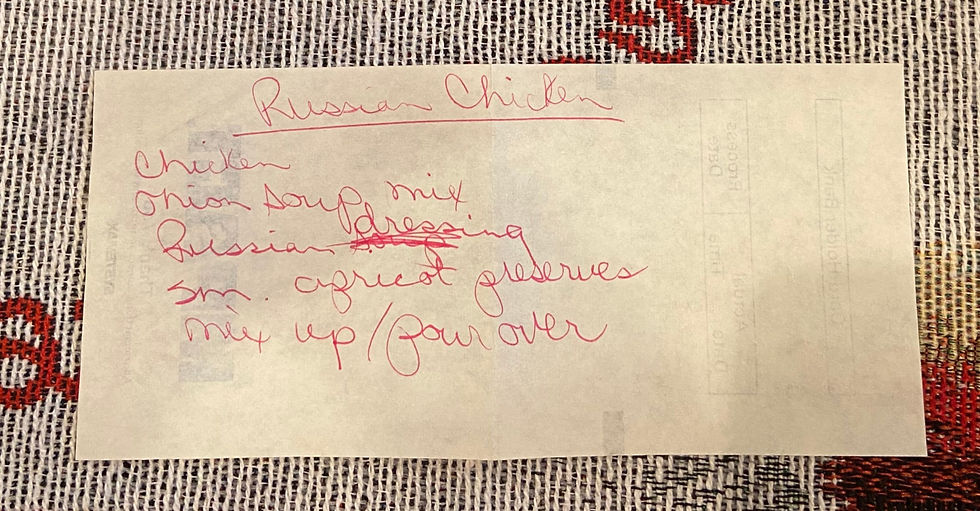 Russian Chicken
Chicken
Onion soup mix
Russian dressing
sm. apricot preserves
mix up/pour over